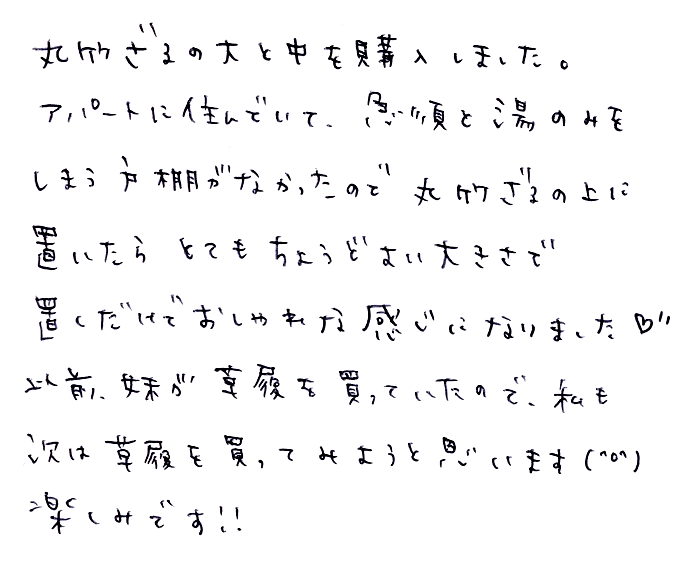 丸竹ざるの大と中を購入しました。
アパートに住んでいて、急須と湯のみを
しまう戸棚がなかったので丸竹ざるの上に
置いたらとてもちょうどよい大きさで
置くだけでおしゃれな感じになりました♡"
以前、妹が草履を買っていたので、私も
次は草履を買ってみようと思います(^o^)
楽しみです!!